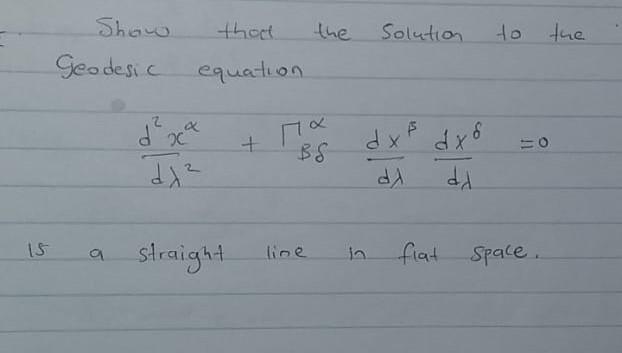 Show that the Solution to the
Geodesic equation
d²x^α/dλ² + Γ^α_βδ dx^β/dλ dx^δ/dλ = 0
is a straight line in flat space.